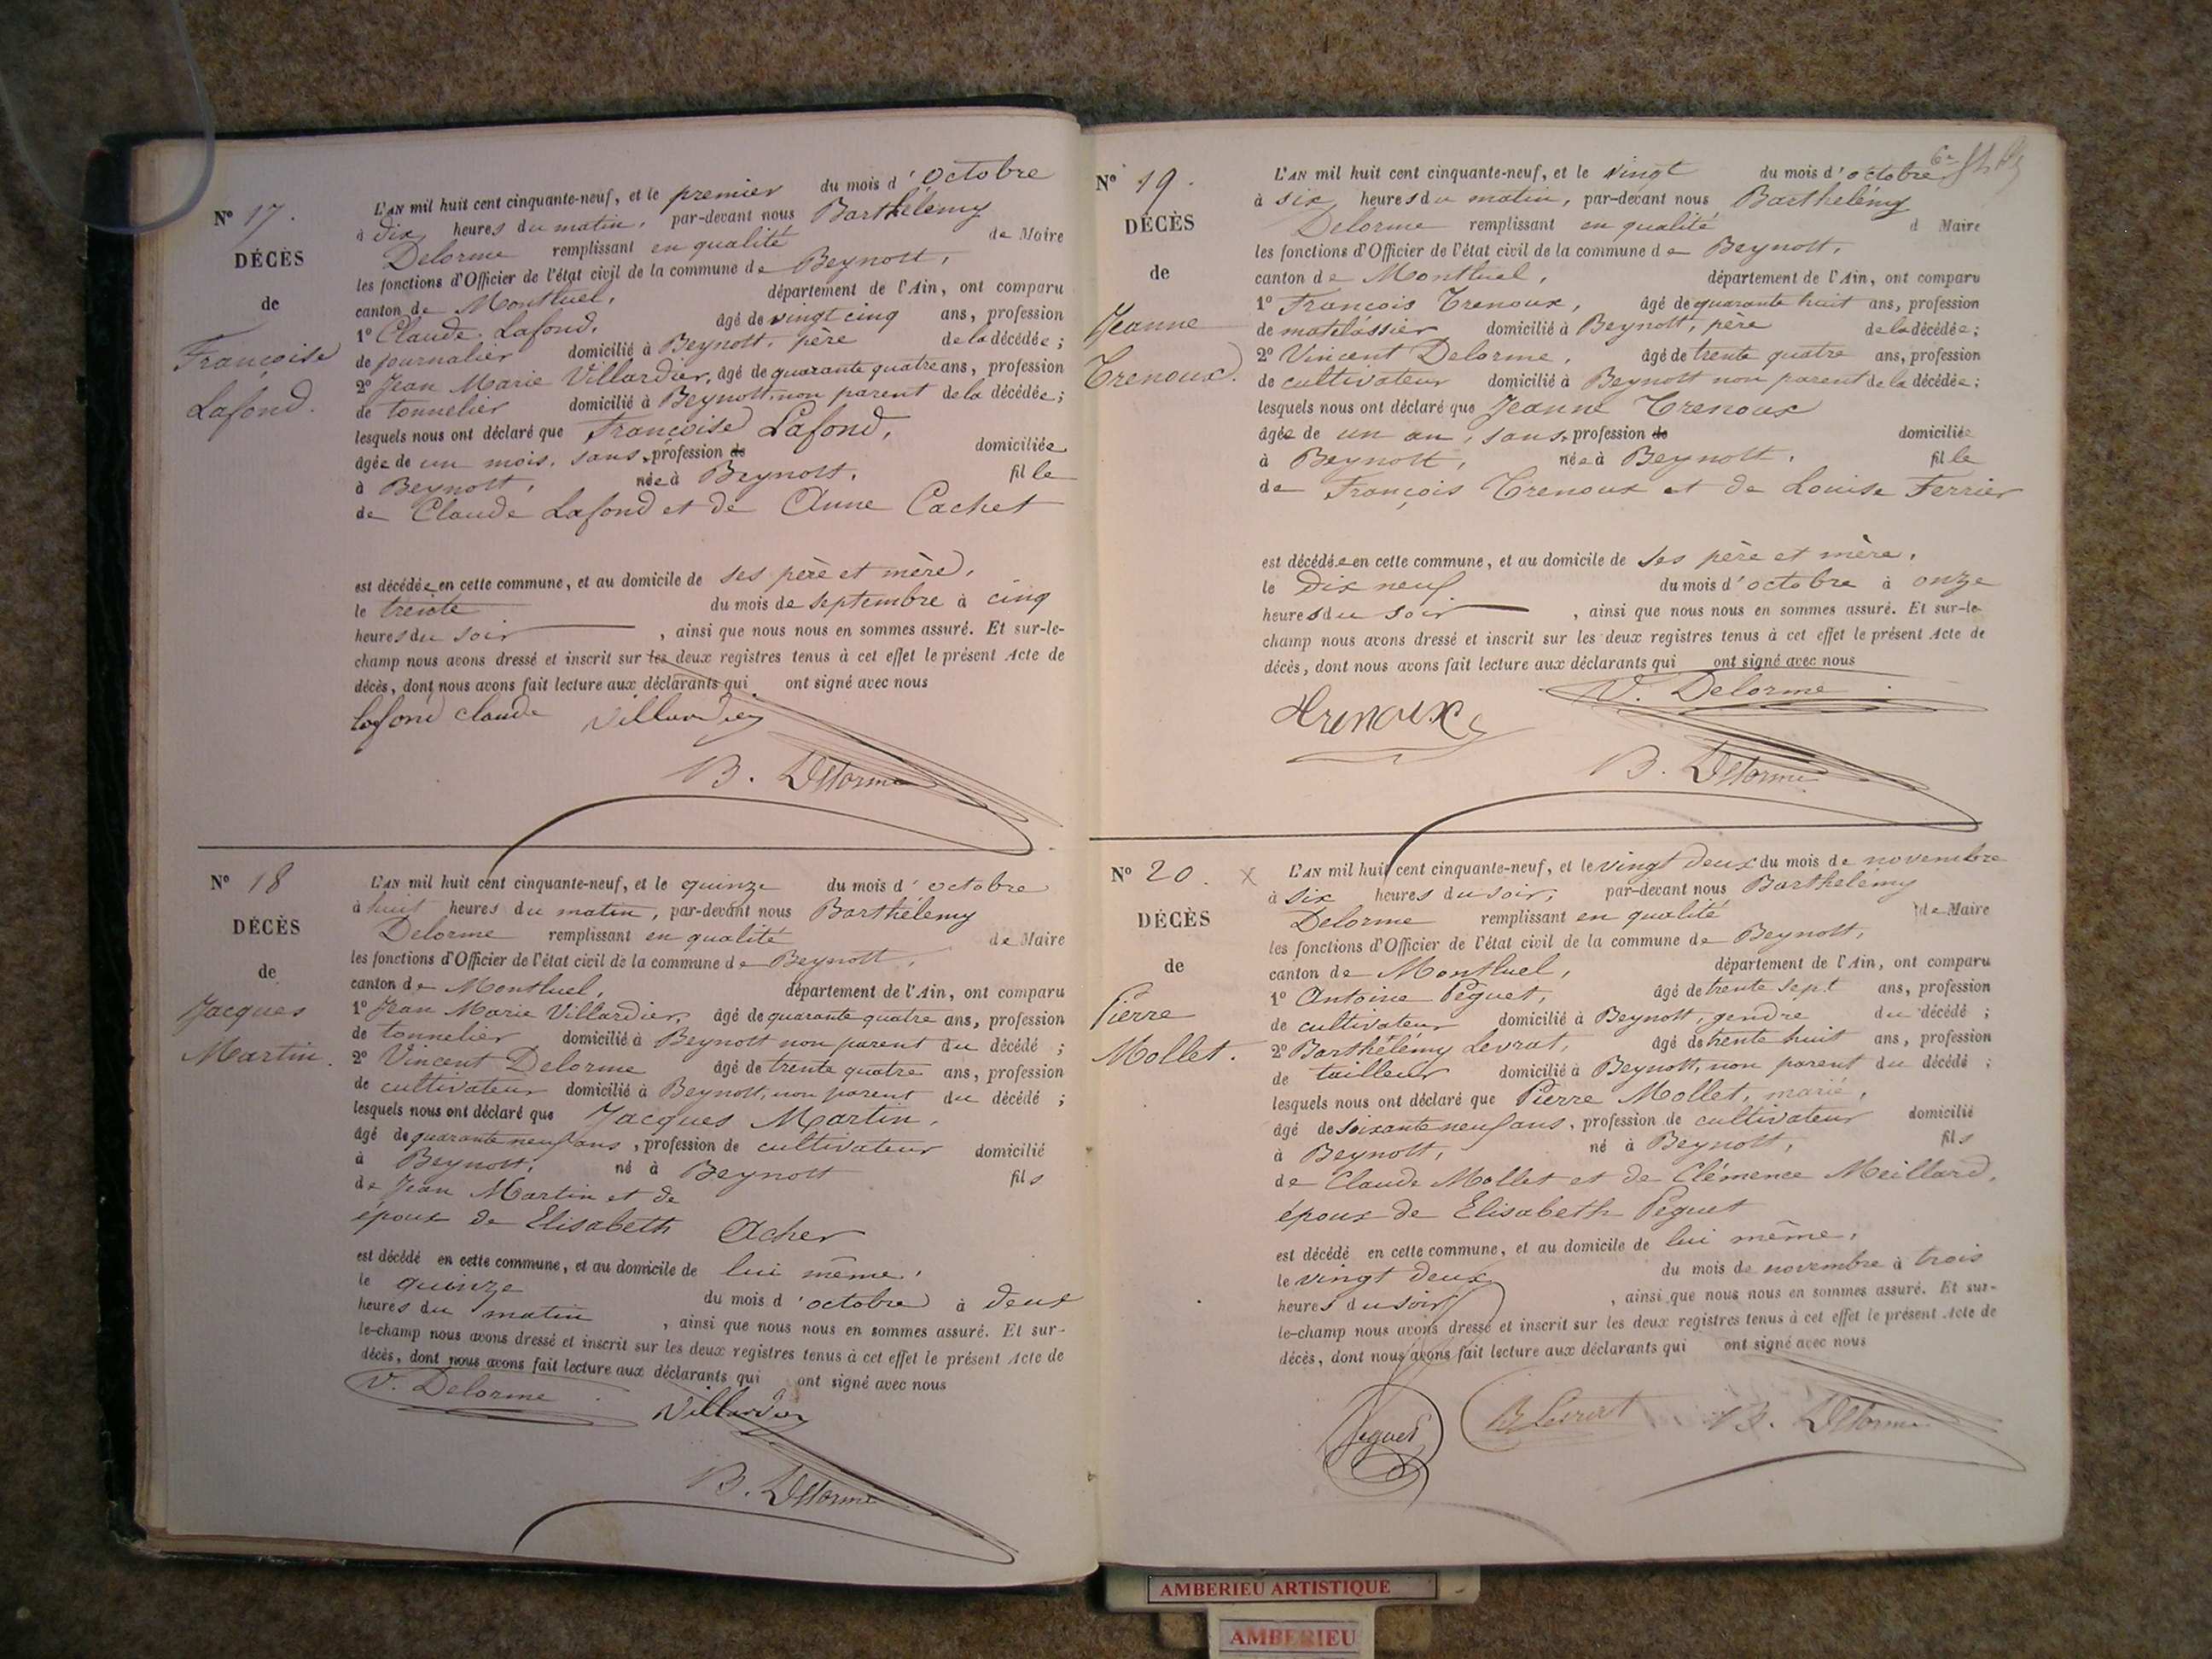 N° 17.
DÉCÈS
de
Françoise
Lafond.
L'AN mil huit cent cinquante-neuf, et le premier du mois d'octobre
à dix heures du matin, par-devant nous Barthélemy
Delorme remplissant en qualité de Maire
les fonctions d'Officier de l'état civil de la commune de Beynost,
canton de Montluel, département de l'Ain, ont comparu
1° Claude Lafond, âgé de vingt cinq ans, profession
de journalier domicilié à Beynost, père de la décédée;
2° Jean Marie Villardier, âgé de quarante quatre ans, profession
de tonnelier domicilié à Beynost, non parent de la décédée;
lesquels nous ont déclaré que Françoise Lafond,
âgée de un mois, sans profession de domiciliée
à Beynost, née à Beynost, fille
de Claude Lafond et de Anne Cachet
est décédée en cette commune, et au domicile de ses père et mère,
le trente du mois de septembre à cinq
heures du soir , ainsi que nous nous en sommes assuré. Et sur-le-
champ nous avons dressé et inscrit sur les deux registres tenus à cet effet le présent Acte de
décès, dont nous avons fait lecture aux déclarants qui ont signé avec nous
lafond claude Villardier
B. Delorme
N° 18
DÉCÈS
de
Jacques
Martin.
L'AN mil huit cent cinquante-neuf, et le quinze du mois d'octobre
à huit heures du matin, par-devant nous Barthélemy
Delorme remplissant en qualité de Maire
les fonctions d'Officier de l'état civil de la commune de Beynost,
canton de Montluel, département de l'Ain, ont comparu
1° Jean Marie Villardier, âgé de quarante quatre ans, profession
de tonnelier domicilié à Beynost non parent du décédé ;
2° Vincent Delorme âgé de trente quatre ans, profession
de cultivateur domicilié à Beynost, non parent du décédé ;
lesquels nous ont déclaré que Jacques Martin,
âgé de quarante neuf ans, profession de cultivateur domicilié
à Beynost, né à Beynost fils
de Jean Martin et de
époux de Elisabeth Acher
est décédé en cette commune, et au domicile de lui même,
le quinze du mois d'octobre à deux
heures du matin , ainsi que nous nous en sommes assuré. Et sur-
le-champ nous avons dressé et inscrit sur les deux registres tenus à cet effet le présent Acte de
décès, dont nous avons fait lecture aux déclarants qui ont signé avec nous
V. Delorme Villardier
B. Delorme
N° 19.
DÉCÈS
de
Jeanne
Trenoux.
L'AN mil huit cent cinquante-neuf, et le vingt du mois d'octobre
à six heures du matin, par-devant nous Barthélémy
Delorme remplissant en qualité d Maire
les fonctions d'Officier de l'état civil de la commune de Beynost,
canton de Montluel, département de l'Ain, ont comparu
1° François Trenoux, âgé de quarante huit ans, profession
de matelassier domicilié à Beynost, père de la décédée;
2° Vincent Delorme, âgé de trente quatre ans, profession
de cultivateur domicilié à Beynost non parent de la décédée;
lesquels nous ont déclaré que Jeanne Trenoux
âgée de un an, sans profession de domiciliée
à Beynost, née à Beynost, fille
de François Trenoux et de Louise Ferrier
est décédée en cette commune, et au domicile de ses père et mère,
le dix neuf du mois d'octobre à onze
heures du soir , ainsi que nous nous en sommes assuré. Et sur-le-
champ nous avons dressé et inscrit sur les deux registres tenus à cet effet le présent Acte de
décès, dont nous avons fait lecture aux déclarants qui ont signé avec nous
V. Delorme
Trenoux
B. Delorme
N° 20. X
DÉCÈS
de
Pierre
Mollet.
L'AN mil huit cent cinquante-neuf, et le vingt deux du mois de novembre
à six heures du soir, par-devant nous Barthélemy
Delorme remplissant en qualité de Maire
les fonctions d'Officier de l'état civil de la commune de Beynost,
canton de Montluel, département de l'Ain, ont comparu
1° Antoine Péguet, âgé de trente sept ans, profession
de cultivateur domicilié à Beynost, gendre du décédé ;
2° Barthélémy Levrat, âgé de trente huit ans, profession
de tailleur domicilié à Beynost, non parent du décédé ;
lesquels nous ont déclaré que Pierre Mollet, marié,
âgé de soixante neuf ans, profession de cultivateur domicilié
à Beynost, né à Beynost, fils
de Claude Mollet et de Clémence Meillard,
époux de Elisabeth Péguet
est décédé en cette commune, et au domicile de lui même,
le vingt deux du mois de novembre à trois
heures du soir , ainsi que nous nous en sommes assuré. Et sur-
le-champ nous avons dressé et inscrit sur les deux registres tenus à cet effet le présent Acte de
décès, dont nous avons fait lecture aux déclarants qui ont signé avec nous
Péguet B Levrat B. Delorme
AMBERIEU ARTISTIQUE
AMBERIEU